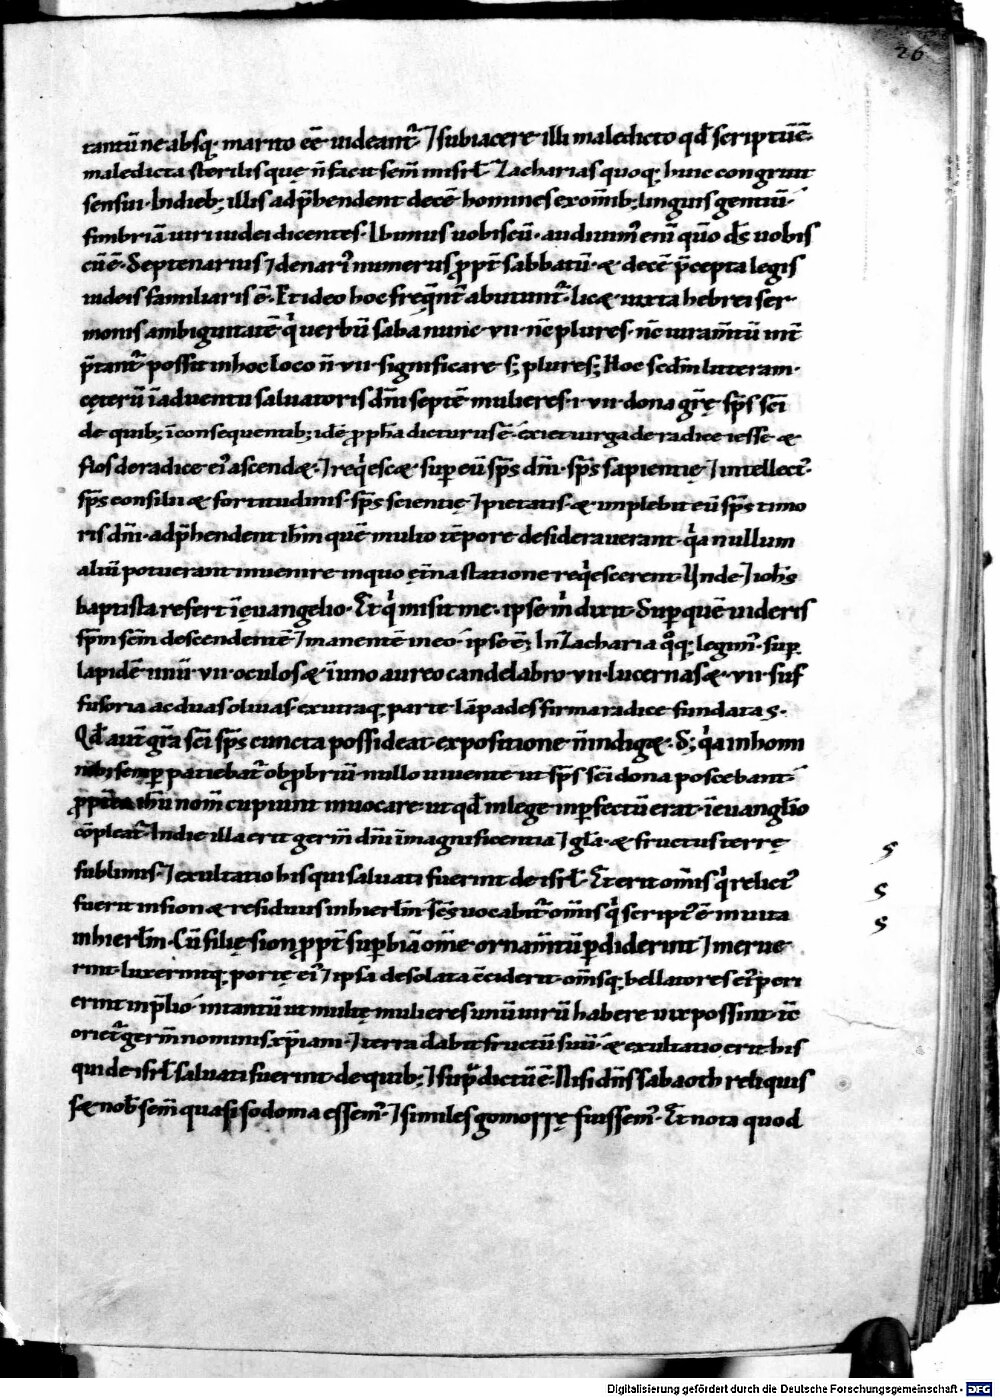 26
tantū ne absq; marito eē uideant᷑. ⁊ subiacere illi maledicto qđ scriptū ē.
maledicta sterilis que n̄ facit sem̄ in isrł. Zacharias quoq; huic congruit
sensui. In dieb; illis adp̄hendent decē homines ex omīb; linguis gentiū.
fimbriā uiri iudei dicentes. Ibimus uobiscū. audiuim᷒ enī qūo d̄s uobis
cū ē. Septenarius ⁊ denari᷒ numerus ꝓpt̄ sabbatū. & decē p̄cepta legis
iudeis familiaris ē. Et ideo hoc freq̄nt̄ abutunt᷑. lic& iuxta hebrei ser
monis ambiguitatē qͥ uerbū saba nunc. vii. nc̄ plures. nc̄ iuram̄tū int̄
p̄tant᷑ possit in hoc loco n̄ vii. significare s; plures; Hoc scd̄m litteram.
cęterū ī aduentu saluatoris dn̄i septē mulieres. i. vii. dona gr̄ę sp̄s sc̄i
de quib; ī consequentib; idē ꝓph̄a dicturus ē. exiet uirga de radice iesse &
flos de radice ei᷒ ascend&. ⁊ req̇esc& sup eū sp̄s dn̄i. sp̄s sapientię ⁊ intellect᷒.
sp̄s consilii & fortitudinis. sp̄s scientię ⁊ pietatis. & implebit eū sp̄s timo
ris dn̄i. adp̄hendent ih̄m quē multo tēpore desiderauerant. qͥa nullum
aliū potuerant inuenire in quo ęt̄na statione req̇escerent. Unde ⁊ ioh̄s
baptista refert ī ęuangelio. Et qͥ misit me. ipse m̄ dixit. Sup quē uideris
sp̄m sc̄m descendentē ⁊ manentē in eo. ipse ē; In Zacharia qͦq; legim᷒. sup
lapidē unū. vii. oculos & ī uno aureo candelabro. vii. lucernas &. vii. suf
fusoria ac duas oliuas ex utraq; parte lāpades firma radice fundatas.
Qđ aut̄ gr̄a sc̄i sp̄s cuncta possideat. expositione n̄ indig&. S; qͥa in homi
nib; semp patiebat᷑ obprobriū. nullo uiuente ut sp̄s sc̄i dona poscebant.
ih̄u nom̄ cupiunt inuocare. ut qđ in lege inpfectū erat. ī euangłio
cōpleat᷑. In die illa erit germ̄ dn̄i ī magnificentia ⁊ gła. & fructus terrę
sublimis. ⁊ exultatio his qui saluati fuerint de isrł. Et erit omīs qͥ relict᷒
fuerit in sion & residuus in hierłm. sc̄s uocabit᷑. omīs qͥ script᷒ ē in uita
in hierłm. Cū filię sion ꝓpt̄ supbiā om̄e ornam̄tū pdiderint ⁊ merue
rint. luxerintq; portę ei᷒ ⁊ ipsa desolata ceciderit. omīsq; bellatores ei᷒ peri
erint in p̄lio. intantū ut multę mulieres unū uirū habere uix possint. tc̄
oriet᷑ germ̄ nominis xp̄iani. ⁊ terra dabit fructū suū. & exultatio erit his
qui de isrł saluati fuerint. de quib; ⁊ sup̄ dictū ē. Nisi dn̄s sabaoth reliquis
s& nob̄ sem̄ quasi sodoma essem᷒. ⁊ similes gomorrę fuissem᷒. Et nota quod
Digitalisierung gefördert durch die Deutsche Forschungsgemeinschaft - DFG